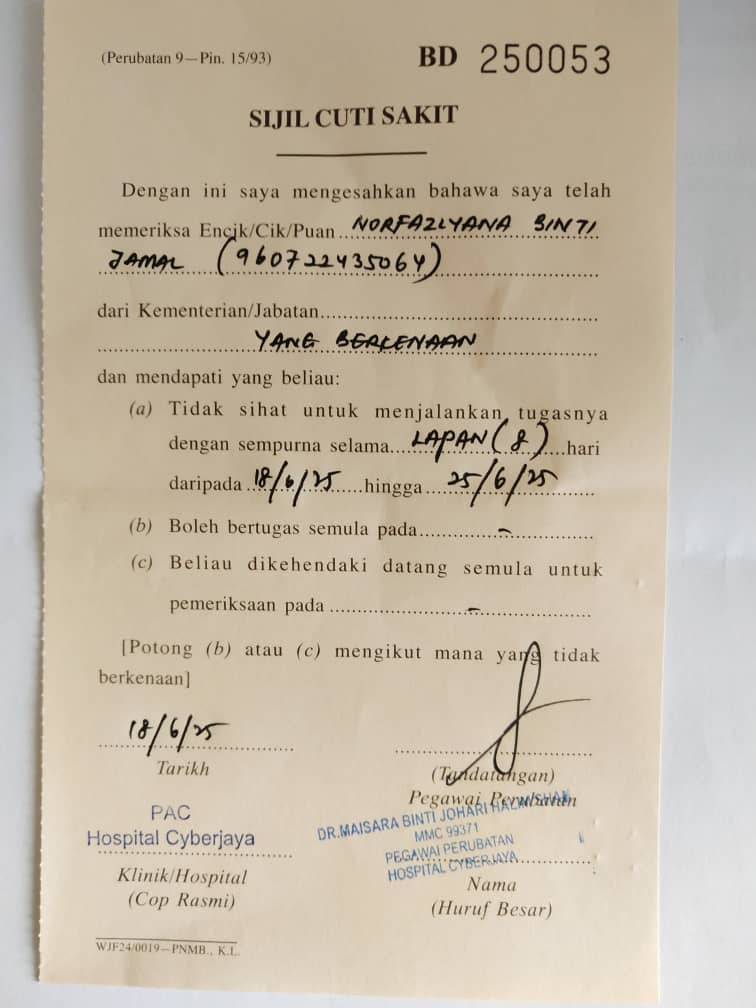 (Perubatan 9—Pin. 15/93)
BD 250053
SIJIL CUTI SAKIT
Dengan ini saya mengesahkan bahawa saya telah
memeriksa Encik/Cik/Puan NORFAZLYANA BINTI
JAMAL (960722435064)
dari Kementerian/Jabatan
YANG BERKENAAN
dan mendapati yang beliau:
(a) Tidak sihat untuk menjalankan tugasnya
dengan sempurna selama LAPAN (8) hari
daripada 18/6/25 hingga 25/6/25
(b) Boleh bertugas semula pada -
(c) Beliau dikehendaki datang semula untuk
pemeriksaan pada -
[Potong (b) atau (c) mengikut mana yang tidak
berkenaan]
18/6/25
Tarikh
(Tandatangan)
Pegawai Perubatan
PAC
Hospital Cyberjaya
DR.MAISARA BINTI JOHARI
MMC 99371
PEGAWAI PERUBATAN
HOSPITAL CYBERJAYA
Klinik/Hospital
(Cop Rasmi)
Nama
(Huruf Besar)
WJF24/0019—PNMB., K.L.